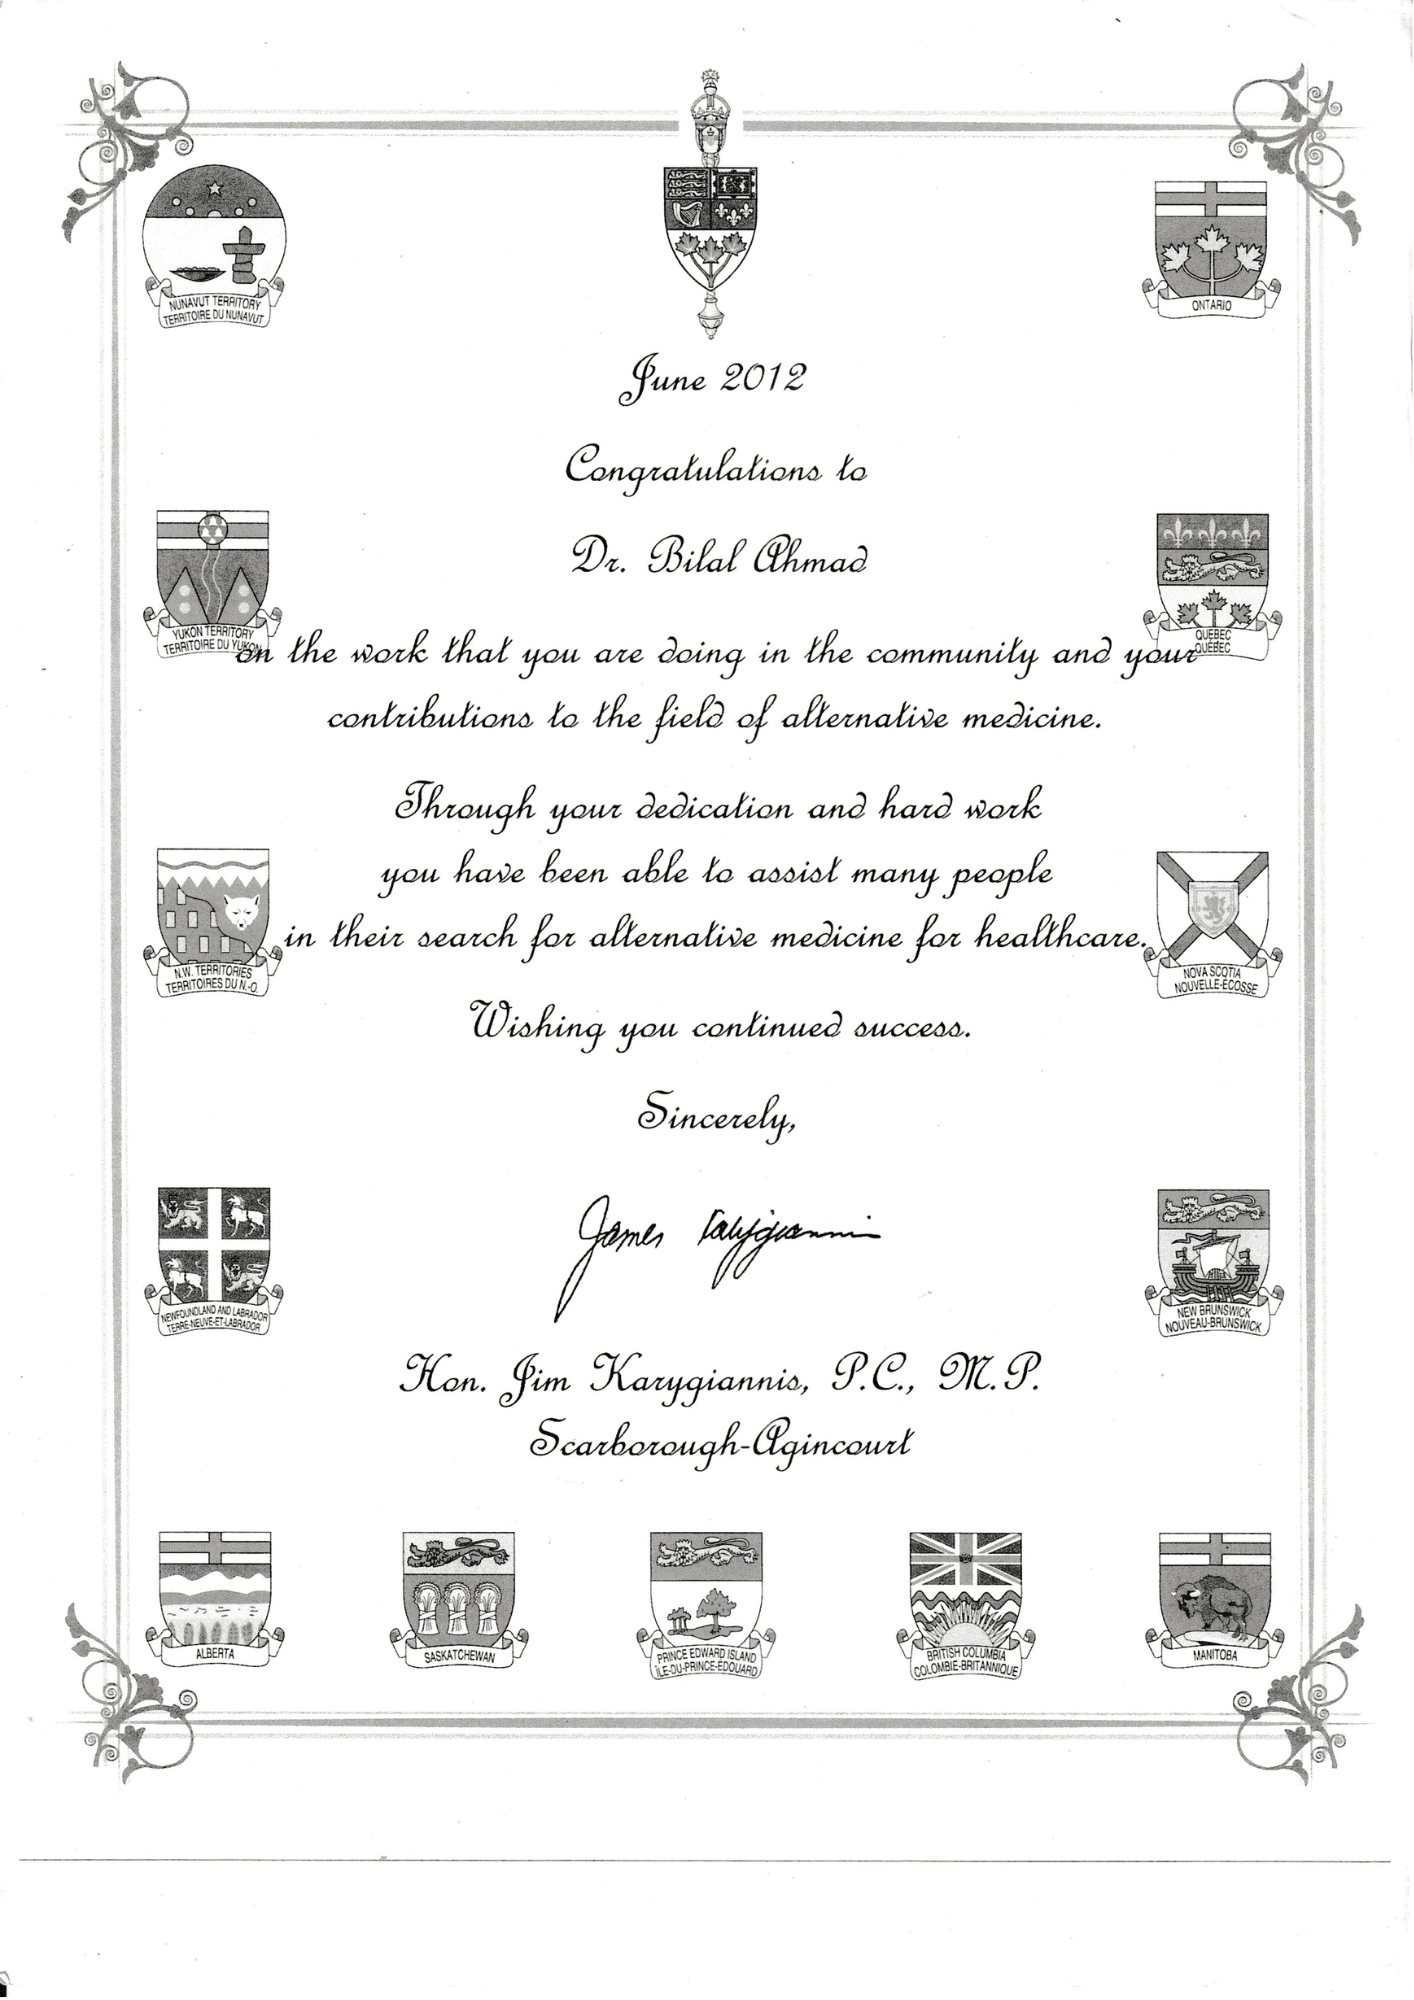 NUNAVUT TERRITORY
TERRITOIRE DU NUNAVUT
ONTARIO
June 2012
Congratulations to
Dr. Bilal Ahmad
YUKON TERRITORY
TERRITOIRE DU YUKON
QUEBEC
QUÉBEC
on the work that you are doing in the community and your
contributions to the field of alternative medicine.
Through your dedication and hard work
you have been able to assist many people
in their search for alternative medicine for healthcare.
N.W. TERRITORIES
TERRITOIRES DU N.-O.
NOVA SCOTIA
NOUVELLE-ÉCOSSE
Wishing you continued success.
Sincerely,
James Karygiannis
NEWFOUNDLAND AND LABRADOR
TERRE-NEUVE-ET-LABRADOR
NEW BRUNSWICK
NOUVEAU-BRUNSWICK
Hon. Jim Karygiannis, P.C., M.P.
Scarborough-Agincourt
ALBERTA
SASKATCHEWAN
PRINCE EDWARD ISLAND
ÎLE-DU-PRINCE-ÉDOUARD
BRITISH COLUMBIA
COLOMBIE-BRITANNIQUE
MANITOBA